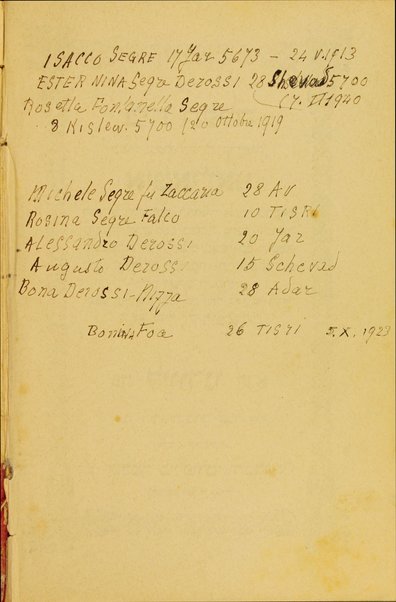 ISACCO SEGRE 17 Jar 5673 - 24 V. 1913
ESTER NINA Segre Derossi 28 Shevad 5700
Rosetta Fontanella Segre (7. II 1940
8 Kislew. 5700 (20 Ottobre 1919
Michele Segre fu Zaccaria 28 AV
Rosina Segre Falco 10 TISRI
Alessandro Derossi 20 Jar
Augusto Derossi 15 Schevad
Bona Derossi-Nizza 28 Adar
Bonina Foa 26 TISRI 5. X. 1923